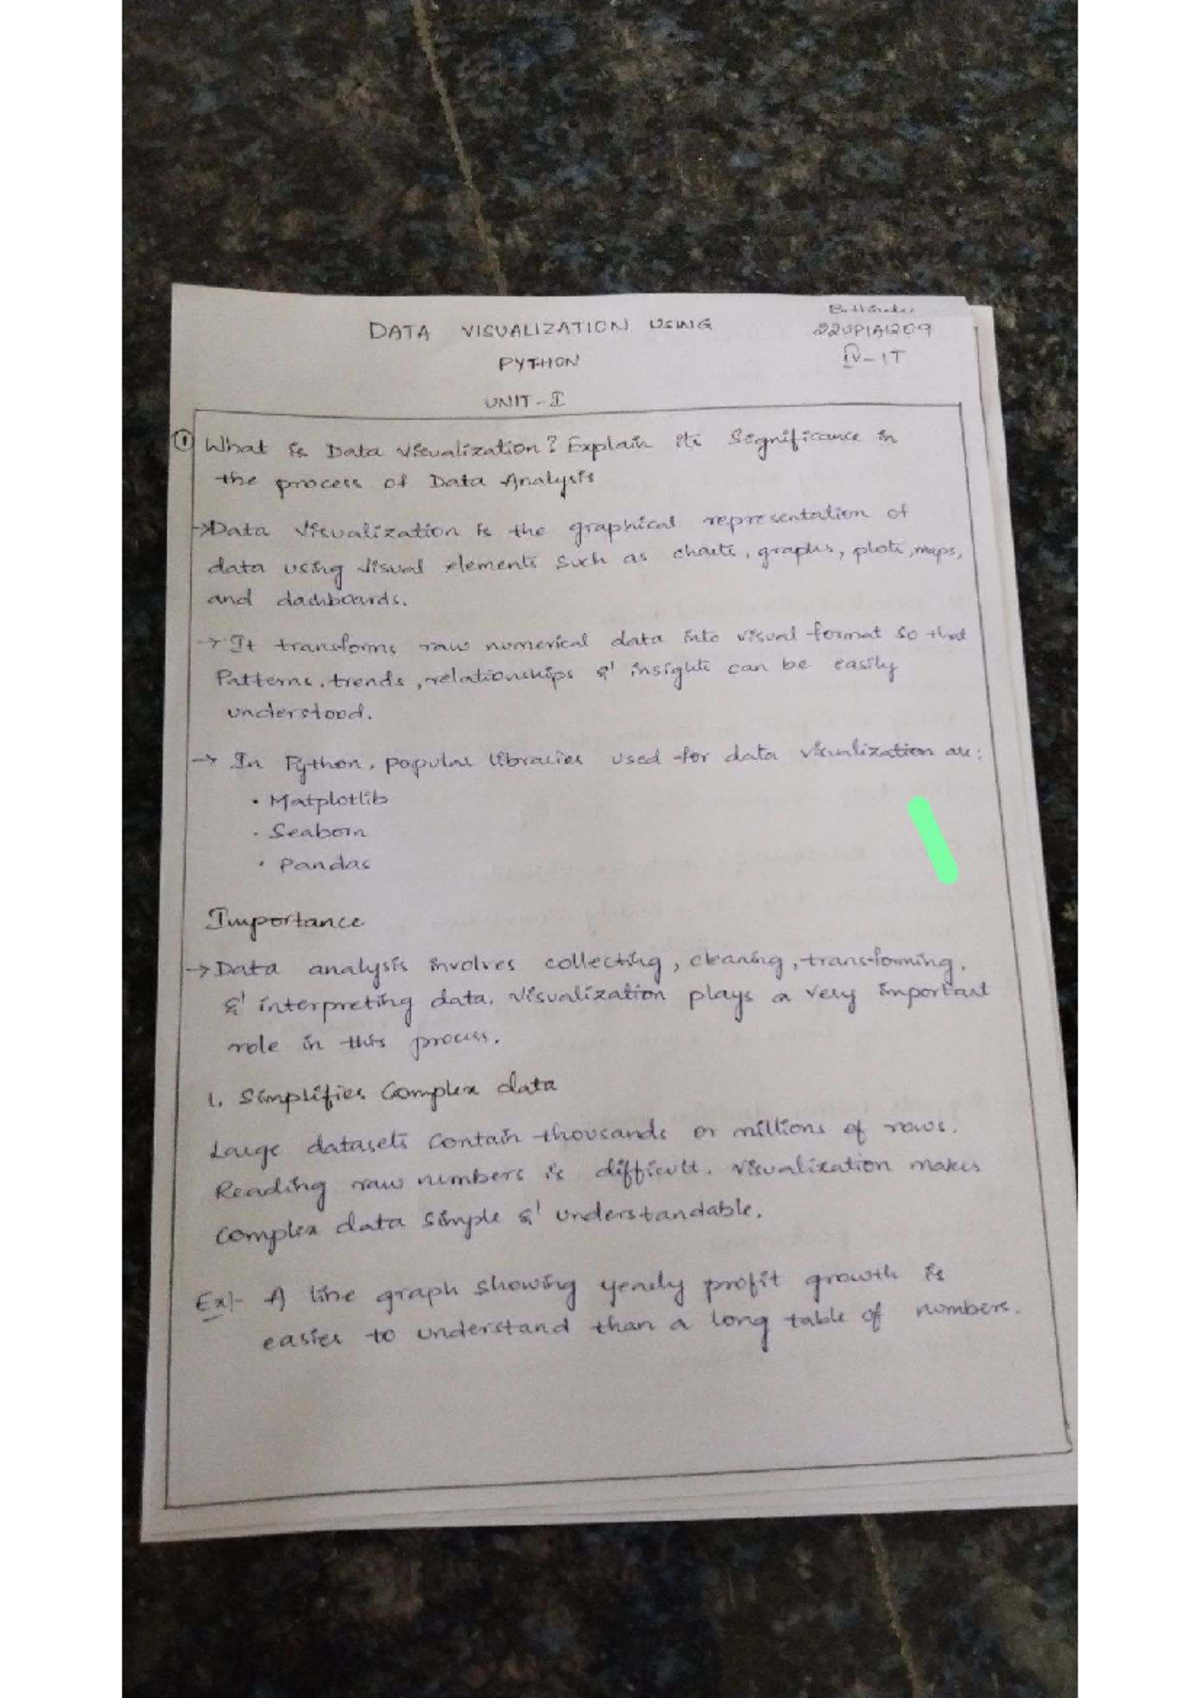 DATA VISUALIZATION USING
PYTHON
22UP1A1209
IV-IT
UNIT-I
① What is Data Visualization? Explain its Significance in
the process of Data Analysis
→Data Visualization is the graphical representation of
data using visual elements such as charts, graphs, plots, maps,
and dashboards.
→ It transforms raw numerical data into visual format so that
Patterns, trends, relationships & insights can be easily
understood.
→ In Python, popular libraries used for data visualization are:
• Matplotlib
• Seaborn
• Pandas
Importance
→Data analysis involves collecting, cleaning, transforming,
& interpreting data. Visualization plays a very important
role in this process.
1. Simplifies Complex data
Large datasets Contain thousands or millions of rows.
Reading raw numbers is difficult. Visualization makes
Complex data Simple & understandable.
Ex:- A line graph showing yearly profit growth is
easier to understand than a long table of numbers.